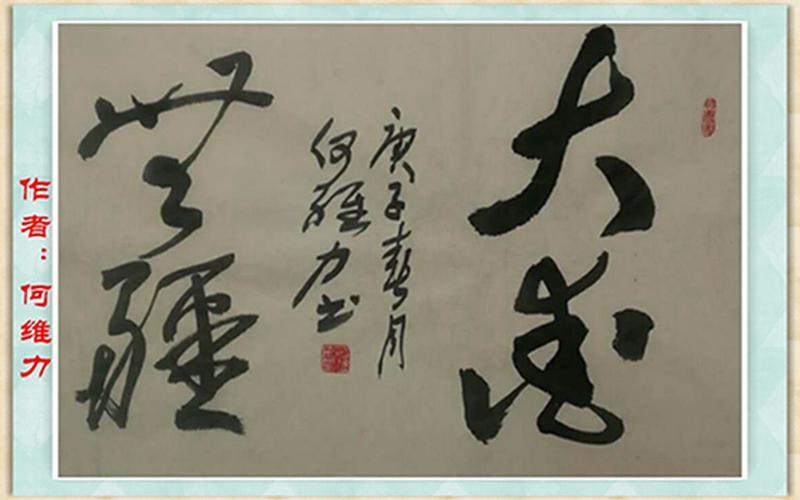 大爱
無疆
庚子春月
何維力书
作者：何维力